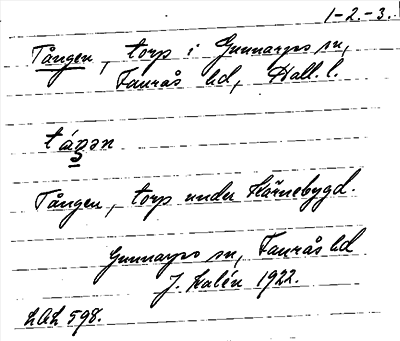 1-2-3.
Tången, torp i Gunnarps sn,
Faurås hd, Hall. l.
táŋən
Tången, torp under Körnebygd.
Gunnarps sn, Faurås hd
J. Kalén 1922.
598.